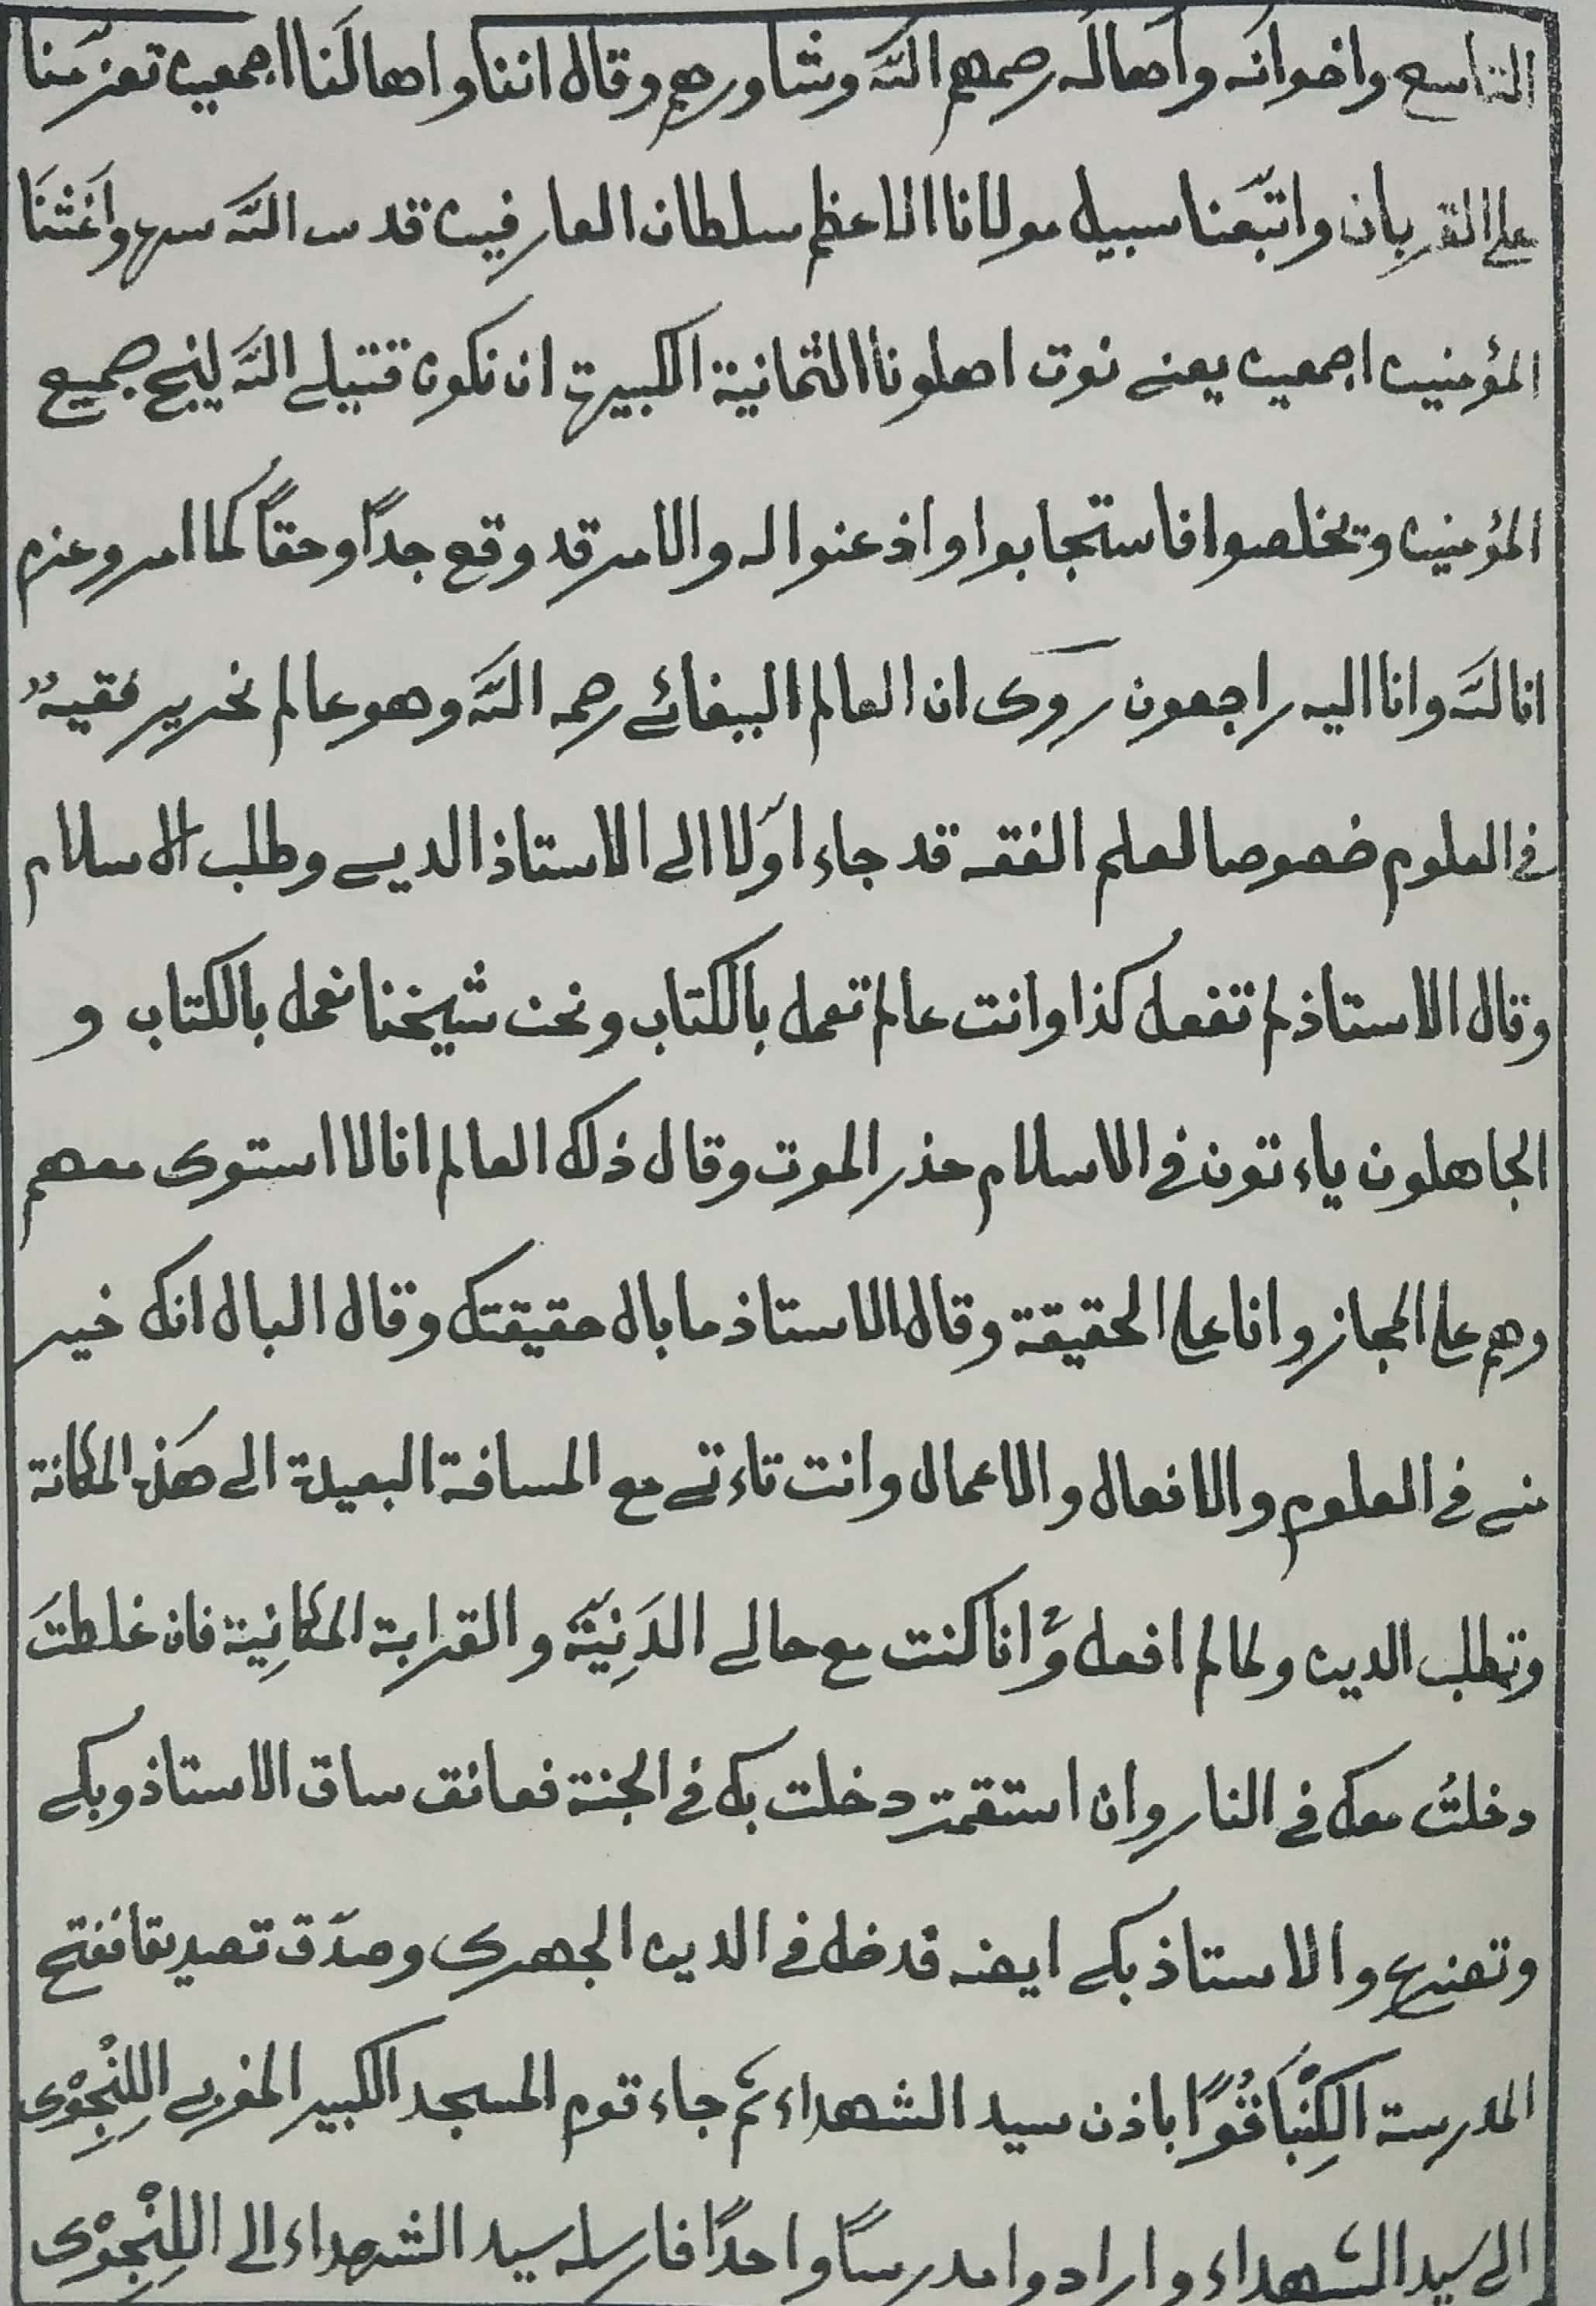 التاسع واخوانَه واَهاله رحمهم اللَّه وشاورهم وقال اننا واهالَنا اجمعين تعزّمنا
على القربان واتّبَعنا سبيل مولانا الاعظم سلطان العارفين قدس اللَّه سره واَغَثْنَا
المؤمنين اجمعين يعنے نوت اهلونا الثمانية الكبيرة ان نكون قتيلے اللَّه لينج جميع
المؤمنين ويخلصوا فاستجابوا واذعنوا له والامر قد وقع جداً وحقاً كما امر وعزم
انا للَّه وانا اليه راجعون رَوى ان العالم البيغائے رحمه اللَّه وهو عالم نحرير فقيهٌ
فے العلوم خصوصا لعلم الفقه قد جاء اوّلا الى الاستاذ الديے وطلب الاسلام
وقال الاستاذ لم تفعل كذا وانت عالم تعمل بالكتاب ونحن شيخنا نعمل بالكتاب و
الجاهلون ياءتون فے الاسلام حذر الموت وقال ذلك العالم انا لا استوى معهم
وهم على المجاز وانا على الحقيقة وقال الاستاذ ما بال حقيقتك وقال البال انك خير
منے فے العلوم والافعال والاعمال وانت تاءتے مع المسافة البعيدة الى هَذه المكانة
وتطلب الدين ولما لم افعل وَانا كنت مع حالے الدَنِيَّة والقرابة المكانِية فان غلطتَ
دخلتُ معك فے النار وان استقمت دخلت بك فے الجنة فعانق ساق الاستاذ وبكے
وتضرع والاستاذ بكے ايضه قدخل فے الدين الجهرى وصدّق تصديقا ففتح
المدرسة الكِنْبَاقُوًا باذن سيد الشهداء ثم جاء قوم المسجد الكبير المغربے اللِنْجِوْى
الى سيد الشهداء وارادوا مدرساً واحدًا فارسله سيد الشهداء الى اللِنْجِوْى